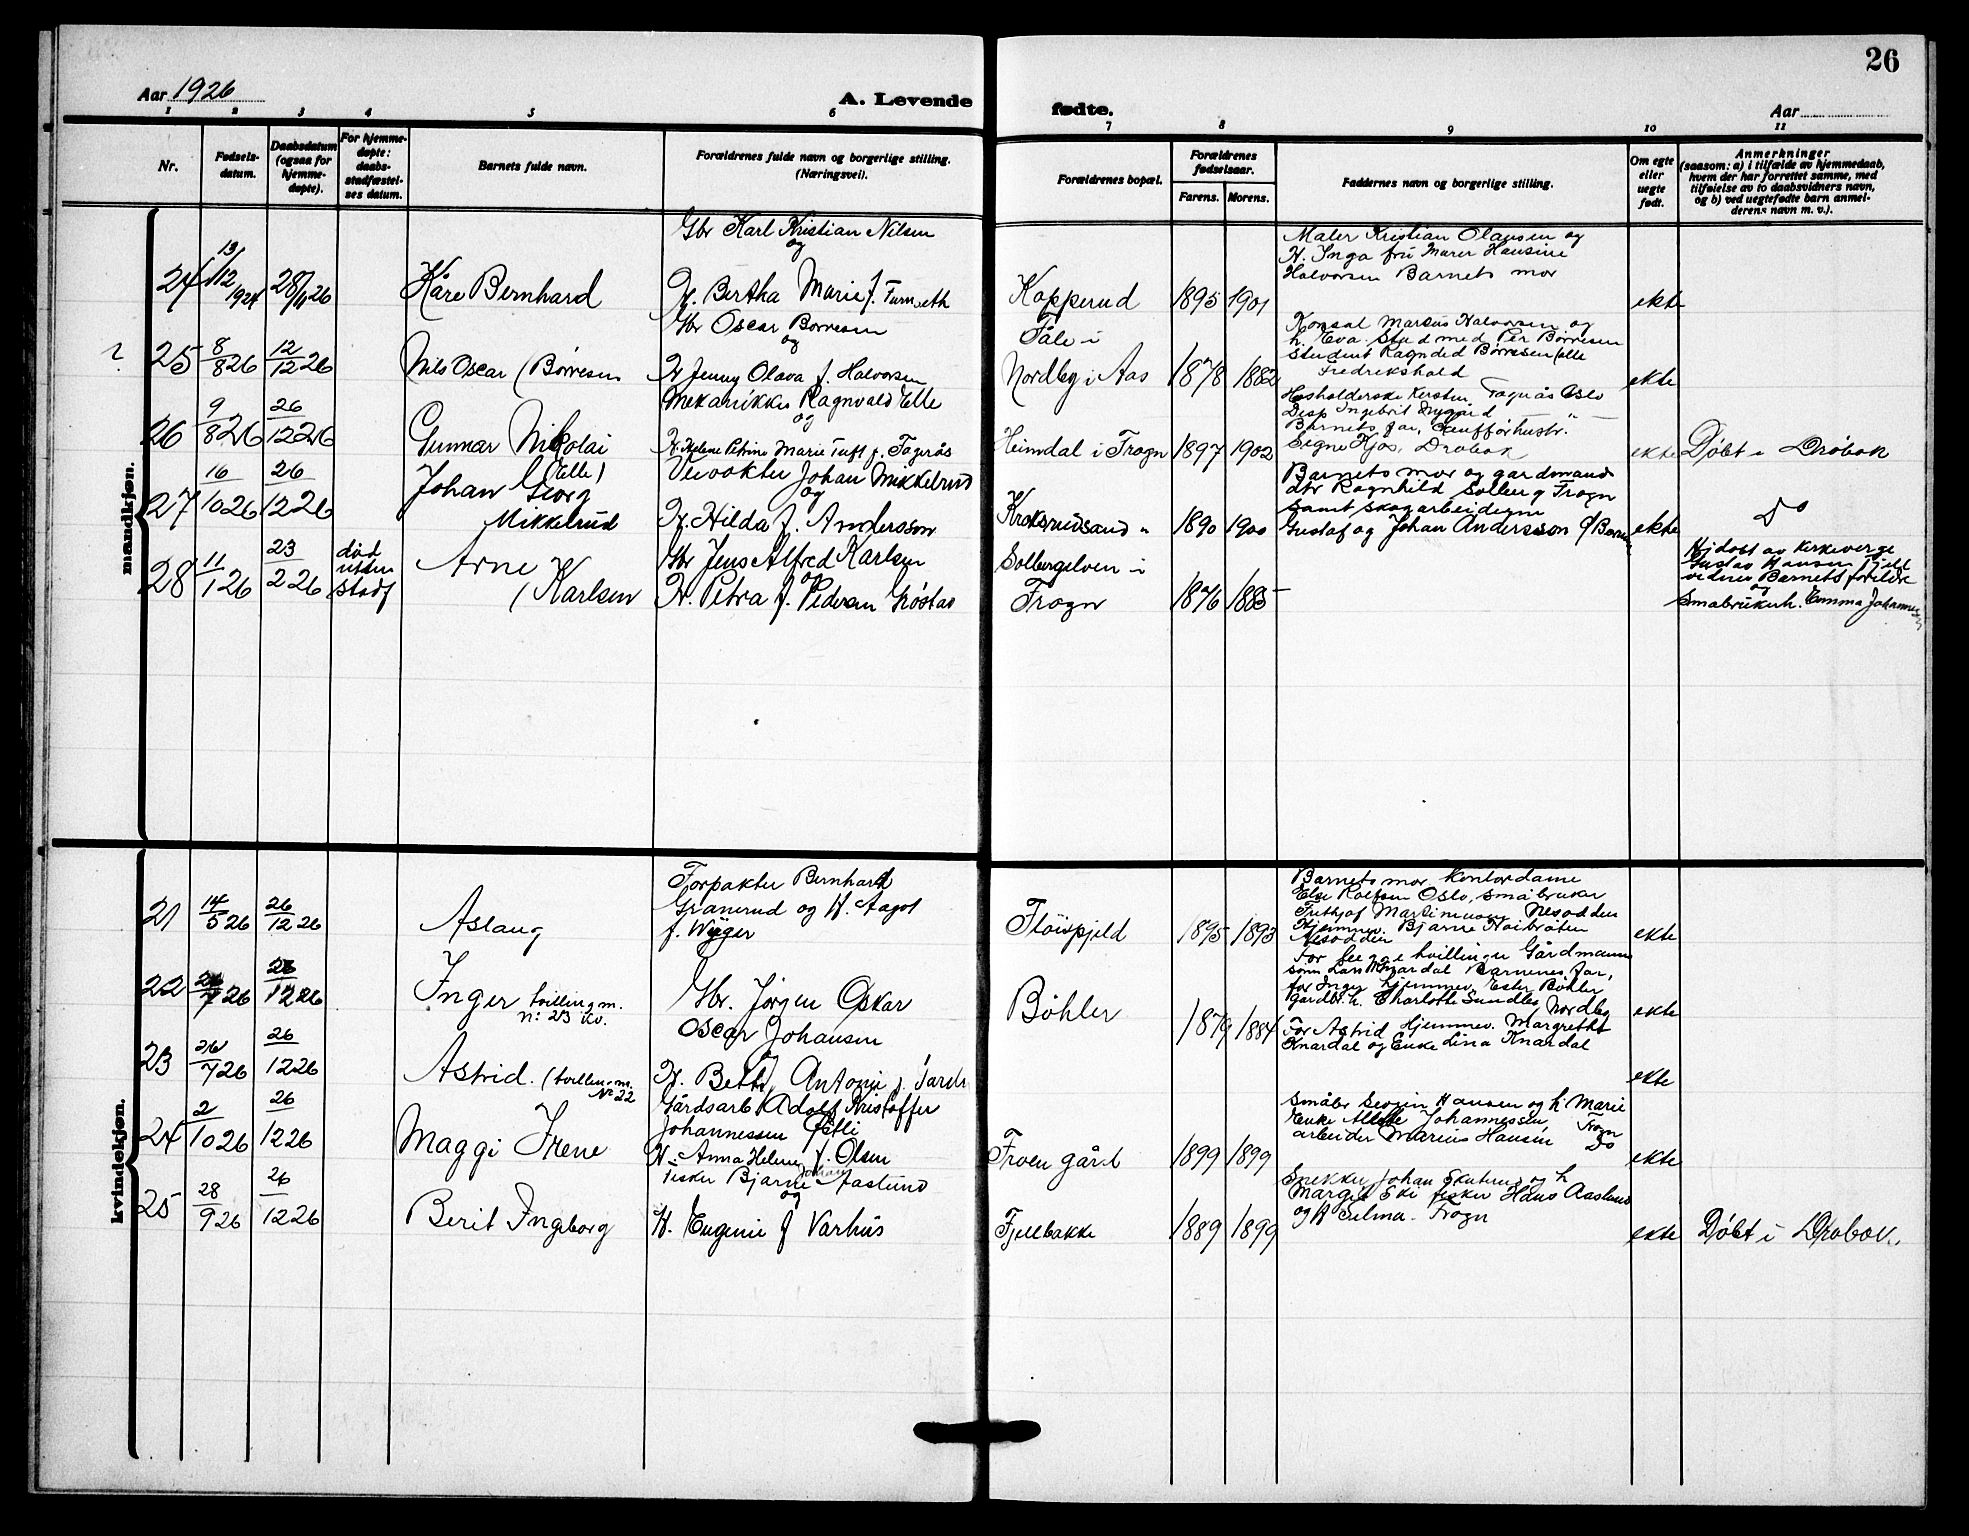 26
Aar 1926
A. Levende
fødte.
Aar
1 2 3 4 5 6 7 8 9 10 11
Nr.
Fødsels-
datum.
Daabsdatum
(ogsaa for
hjemme-
døpte).
For hjemme-
døpte:
daabs-
stadfæstel-
ses datum.
Barnets fulde navn.
Forældrenes fulde navn og borgerlige stilling.
(Næringsvei).
Forældrenes bopæl.
Forældrenes
fødselsaar.
Farens. Morens.
Faddernes navn og borgerlige stilling.
Om egte
eller
uegte
født.
Anmerkninger
(saasom: a) i tilfælde av hjemmedaab,
hvem der har forrettet samme, med
tilføielse av to daabsvidners navn,
og b) ved uegtefødte barn anmel-
derens navn m. v.).
mandkjøn.
24
13/12 1924
28/11 26
Kåre Bernhard
Gbr Karl Kristian Nilsen
og
H. Bertha Marie f.
Kopperud
1895 1901
Maler Kristian Olausen og
H. Inga fru Maren Hansine
Halvorsen Barnets mor
ekte
25
8/8 26
12/12 26
Nils Oscar (Børresen
Gbr Oscar Børresen
og
H Jenny Olava f. Halvorsen
Tåle i
Nordby i Aas
1878 1882
Konsul Marius Halvorsen og
h. Eva Stud med Per Børresen
Student Ragnhild Børresen alle
Fredrikshald
ekte
26
9/8 26
26/12 26
Gunnar Nikolai
(Elle)
Mekanikker Ragnvald Elle
og
H. Helene Petrine Marie Tuft f. Fagerås
Heimdal i Frogn
1897 1902
Husholderske Kersten Fagerås Oslo
Disp Ingebrit
Barnets far, Chaufførhustr.
Signe Kjos, Drøbak
ekte
Døbt i Drøbak
27
16/10 26
26/12 26
Johan Georg
Mikkelrud
Johan Mikkelrud
og
H. Hilda f. Andersson
1890 1900
Barnets mor og gardmand
dtr Ragnhild Solberg Frogn
samt skogarbeiderne
Gustaf og Johan Andersson
ekte
Do
28
11/1 26
23/2 26
død
uten
stadf
Arne
(Karlsen
Gbr Jens Alfred Karlsen
og
H. Petra f. Pedersen
Solbergelven i
Frogn
1876 1885
Hjdøbt av Kirkeverge
Gustav Hansen Fjeld
vidner Barnets forældre
og
Småbrukerh. Emma Johannesen
kvindekjøn.
21
14/5 26
26/12 26
Aslaug
Forpakter Bernhard
Granerud og H. Aagot
f. Wüger
Fløispjeld
1895 1893
Barnets mor, Kontordame
Else Rolfsen Oslo, småbruker
Frithjof Martinussen Nesodden
Hjemmev. Bjarne Høibråten
Nesodden
ekte
22
26/7 26
26/12 26
Inger tvilling m.
n: 23 Kv.
Gbr. Jørgen Oskar
Oscar Johansen
Bøhler
1879 1884
For begge tvillinger Gårdmanns
søn Lars Barnenes far,
for Inger hjemmev. Ester Bøhler
gårdbr.h. Charlotte Sundby Nordby
For Astrid Hjemmev. Margrethe
Knardal og Enke Lina Knardal
ekte
23
26/7 26
26/12 26
Astrid. (tvilling m.
No 22
H. Betty Antonie f.
ekte
24
2/10 26
26/12 26
Maggi Irene
Gårdsarb Adolf Kristoffer
Johannessen
H. Anna Helene f. Olsen
Froen gård
1899 1899
Småbr Hansen og h. Marie
Enke Johannessen, Frogn
arbeider Marius Hansen Do
ekte
25
28/9 26
26/12 26
Berit Ingeborg
Fisker Bjarne Johan Aaslund
og
H. Eugenie f Varhus
Fjellbakke
1889 1899
Snekker Johan og h
Margit Ski fisker Hans Aaslund
og H Selma. Frogn
ekte
Døbt i Drøbak.